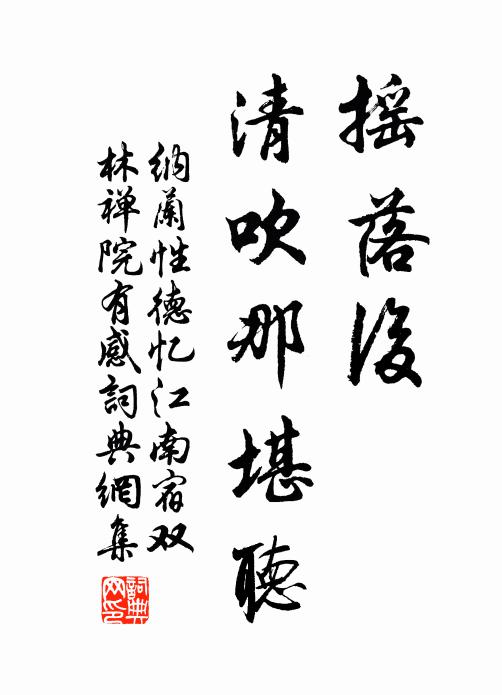 摇落後
清吹那堪聽
納蘭性德忆江南宿双
林禅院有感詞典網集
詞典網印